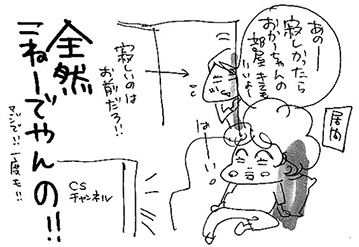 あのー
寂しかったら
おかーちゃんの
部屋きても
いいよー
居間
はーい
寂しいのは
お前だろ!!
CS
チャンネル
全然
こねーでやんの!!
マジで!!一度も!!